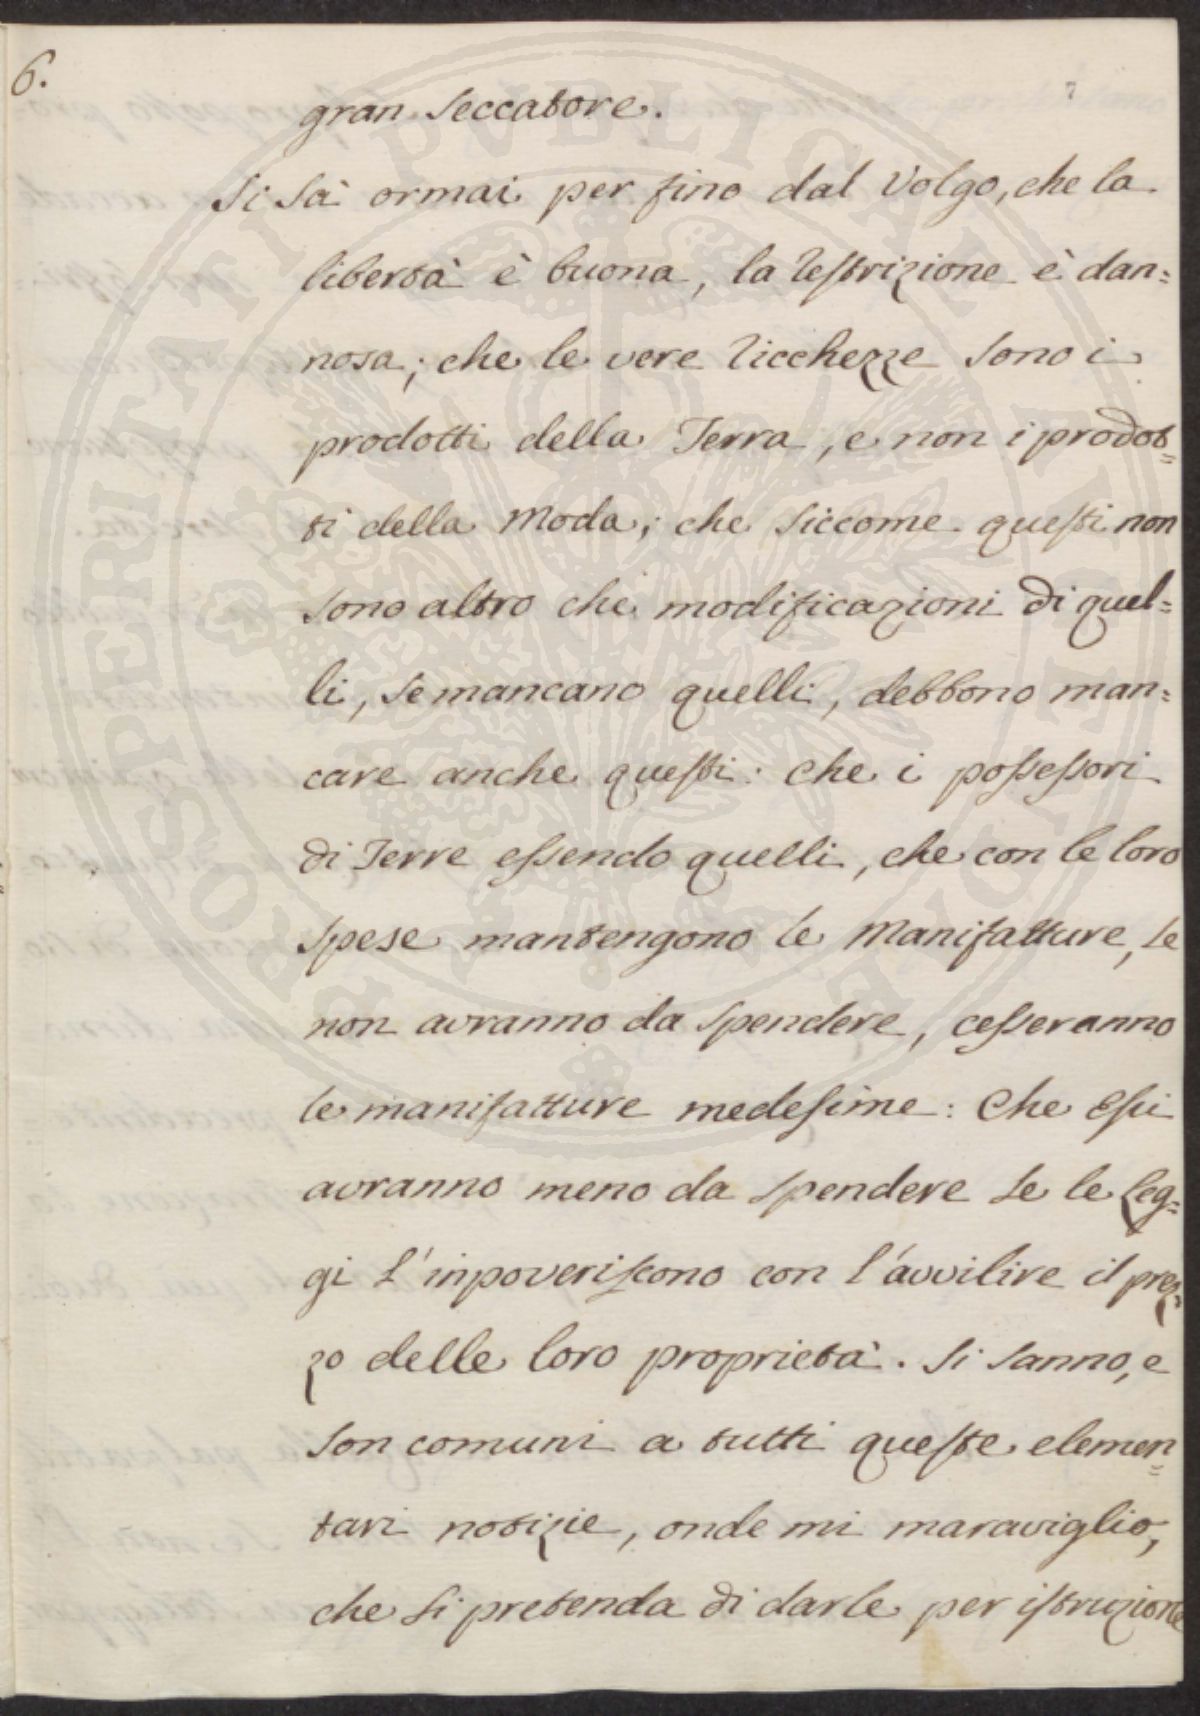 6.
7
gran Seccatore.
Si Sà ormai per fino dal Volgo, che la
libertà è buona, la restrizione è dan=
nosa; che le vere ricchezze Sono i
prodotti della Terra, e non i prodot=
ti della Moda; che Siccome questi non
Sono altro che modificazioni di quel=
li, Se mancano quelli, debbono man=
care anche questi: che i possessori
di Terre essendo quelli, che con le loro
Spese mantengono le Manifatture, Se
non avranno da Spendere, cesseranno
le manifatture medesime: Che essi
avranno meno da Spendere Se le Leg=
gi l'inpoveriscono con l'avvilire il prez=
zo delle loro proprietà. Si Sanno, e
Son comuni a tutti queste elemen=
tari notizie, onde mi maraviglio,
che Si pretenda di darle per istruzione
PROSPERITATI PVBLICAE AVGENDAE